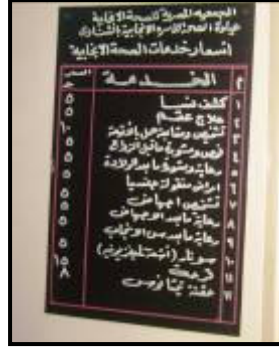 الجمعية المصرية للصحة الإنجابية
عيادة الصحة الأسرية الإنجابية بالشناوى
أسعار خدمات الصحة الإنجابية
م الخدمة السعر
١ كشف نسا ٥
٢ علاج عقم ٥
٣ تشخيص ومتابعة حمل بالأشعة ١٠
٤ فحص ومشورة ماقبل الزواج ٥
٥ رعاية ومشورة مابعد الولادة ٥
٦ امراض منقولة جنسيا ٥
٧ تشخيص اجهاض ٥
٨ رعاية مابعد الاجهاض ٥
٩ رعاية مابعد سن الانجاب ٥
١٠ سونار (أشعة تليفزيونية)
١١ ١٥
١٢ حقنة تيتانوس ٨